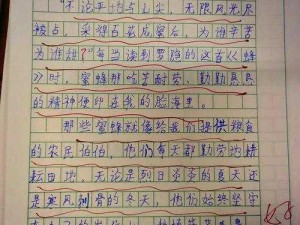 不论平地与山尖，无限风光尽
被占，采得百花成蜜后，为谁辛苦
为谁甜？"每当读到罗隐的这首《蜂
》时，蜜蜂那吃苦耐劳、勤勤恳恳
的精神便印在我的脑海里。
那些蜜蜂就像给我们提供粮食
的农民伯伯，他们每天都勤劳地耕
耘田地，无论是烈日炎炎的夏天还
是寒风刺骨的冬天，他们始终坚守